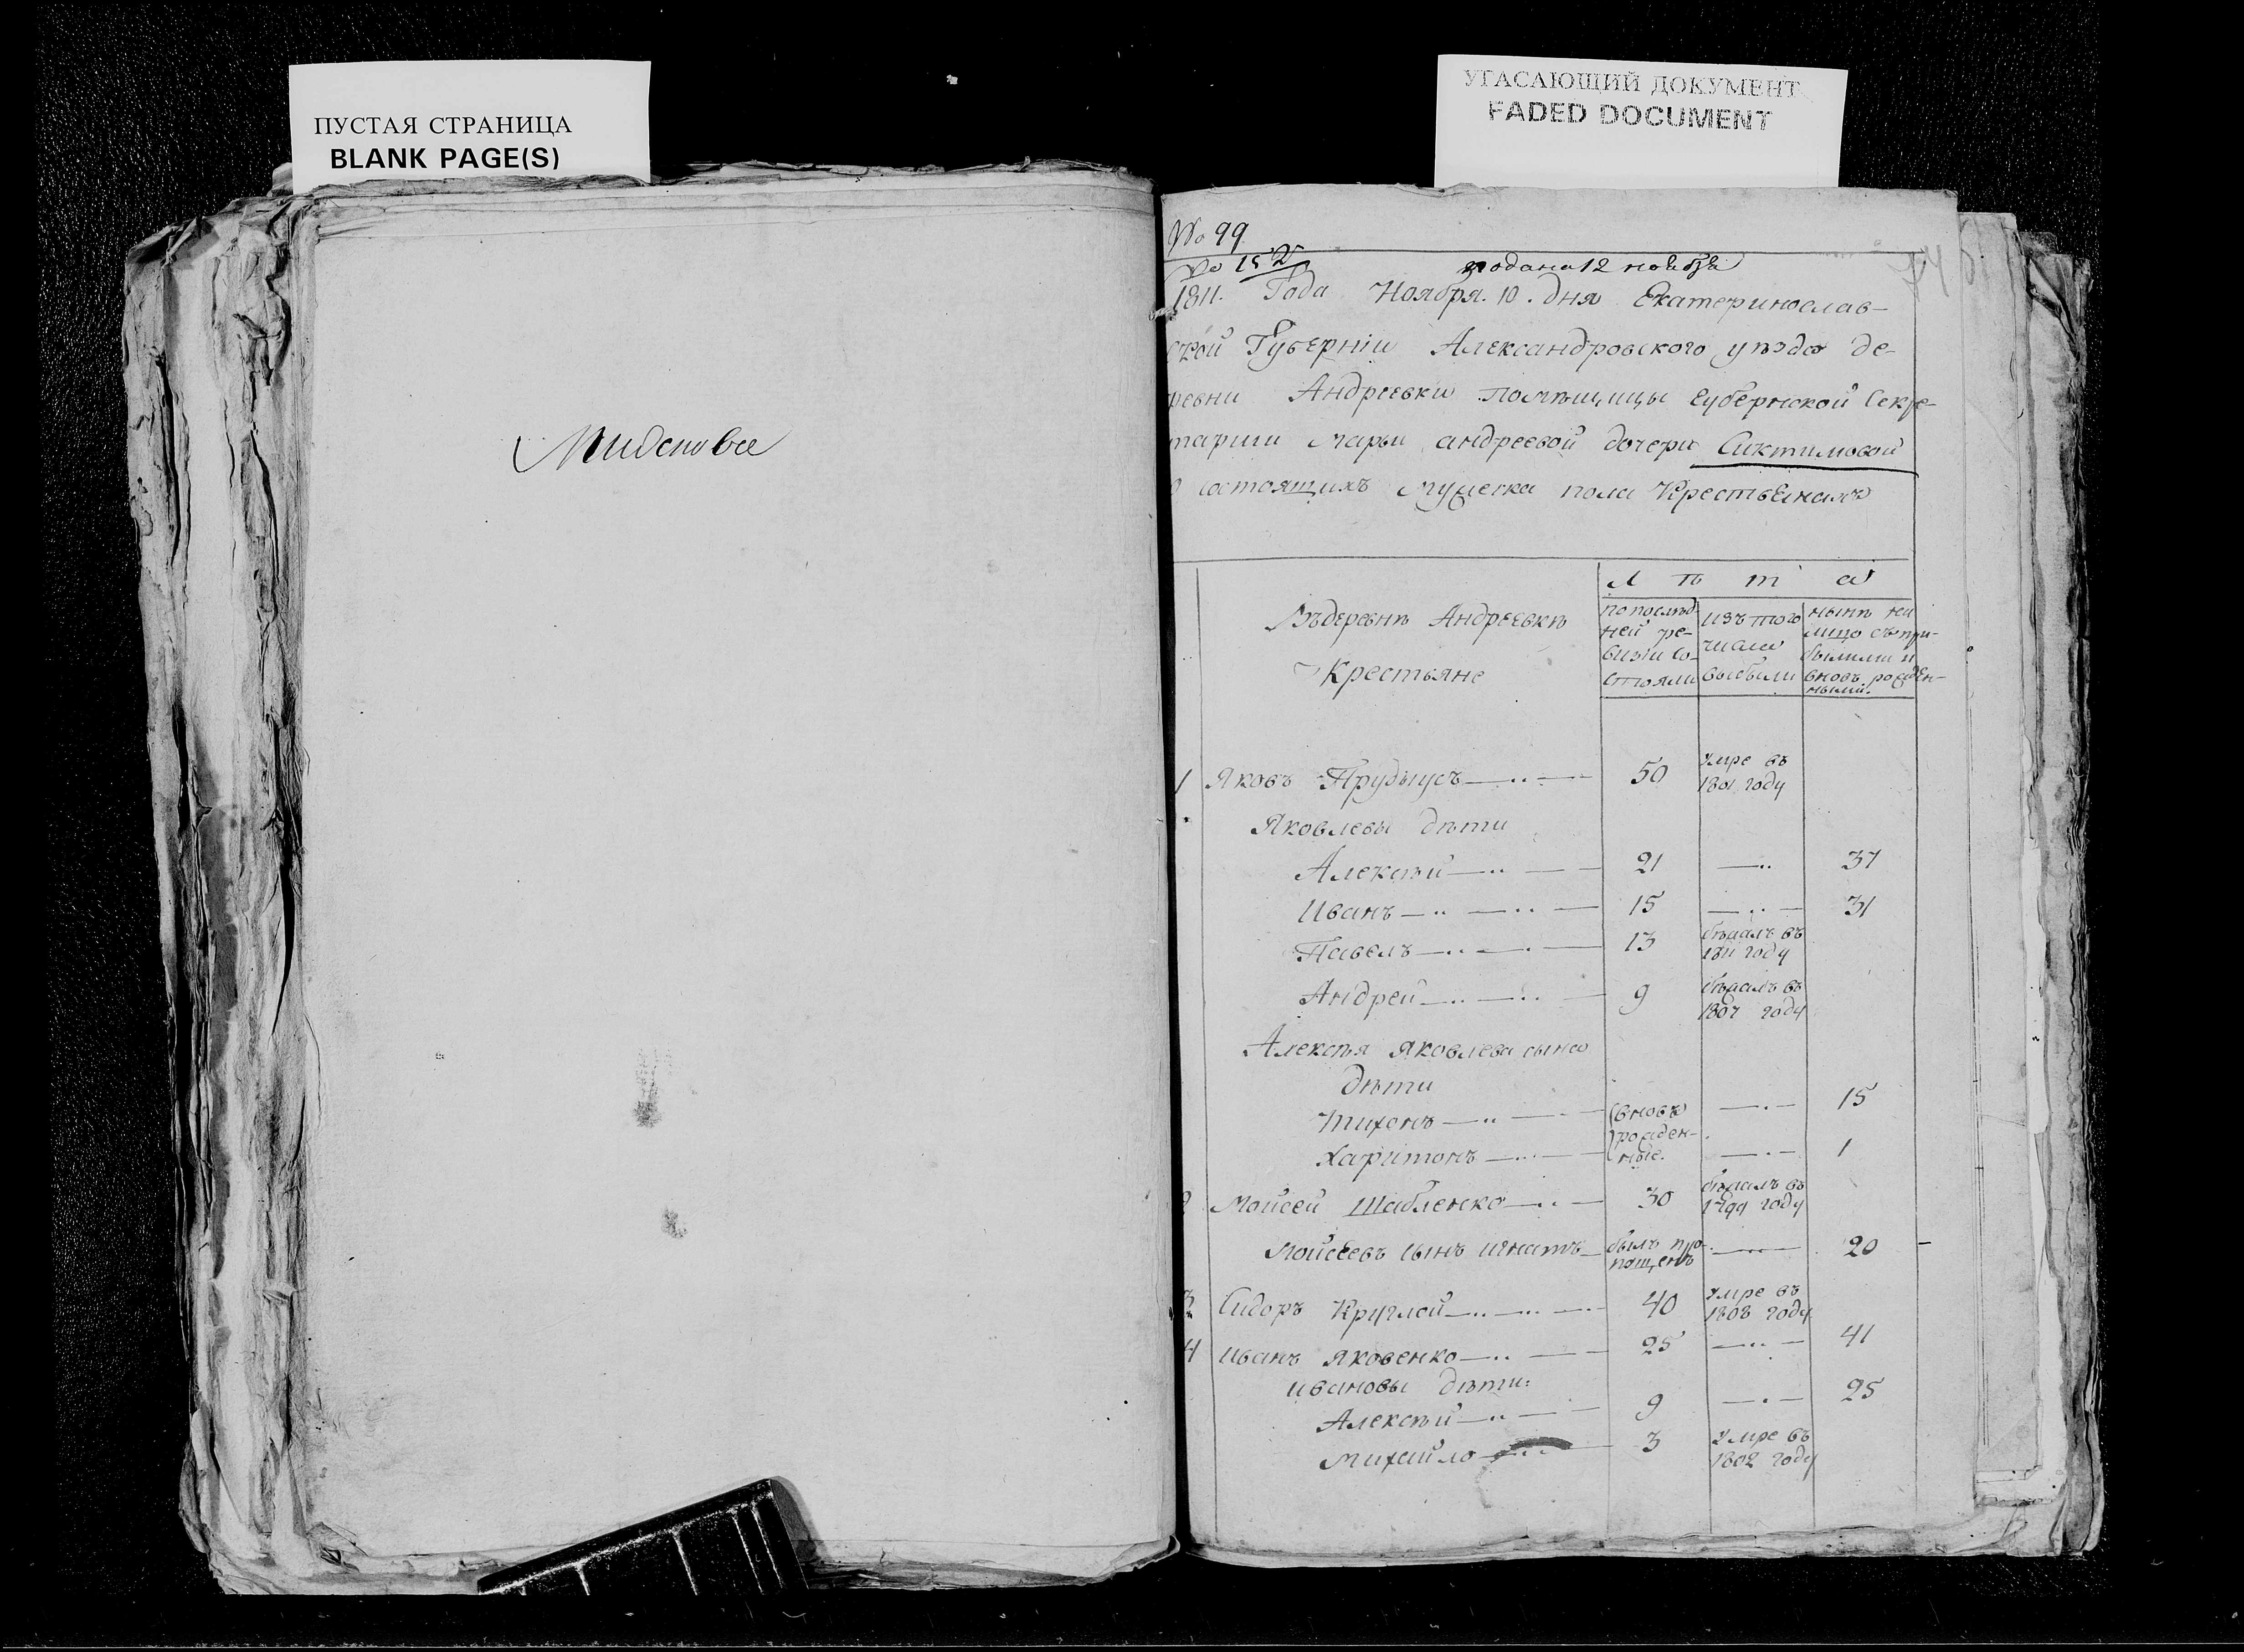 ПУСТАЯ СТРАНИЦА
BLANK PAGE(S)
УГАСАЮЩИЙ ДОКУМЕНТ
FADED DOCUMENT
No 99
No 152
подана 12 ноября
1811. Года Ноября. 10. дня Екатеринослав-
ской Губерніи Александровского уѣзда де-
ревни Андреевки помѣщицы Губернской Секре-
тарши марьи андреевой дочери
о состоящихъ мужеска пола Крестьянахъ
Л ѣ т а
Въ деревнѣ Андреевкѣ
Крестьяне
по послѣд-
ней ре-
визіи со-
стояли
изъ того
числа
выбыли
нынѣ на
лицо съ при-
былыми и
вновь рожден-
ными.
1 Яковъ Прудыусъ 50 Умре въ
1801 году
Яковлевы дѣти
Алексѣй 21 37
Иванъ 15 31
Павелъ 13 бѣжалъ въ
1811 году
Андрей 9 бѣжалъ въ
1807 году
Алексѣя Яковлева сына
дѣти
Тихонъ 15
Харитонъ 1
вновь
рожден-
ные.
2 Моисей Шабленко 30 бѣжалъ въ
1799 году
Мойсеевъ сынъ игнатъ былъ про-
пущенъ 20
3 Сидоръ Круглой 40 Умре въ
1808 году
4 Иванъ Яковенко 25 41
ивановы дѣти:
Алексѣй 9 25
Михайло 3 Умре въ
1802 году